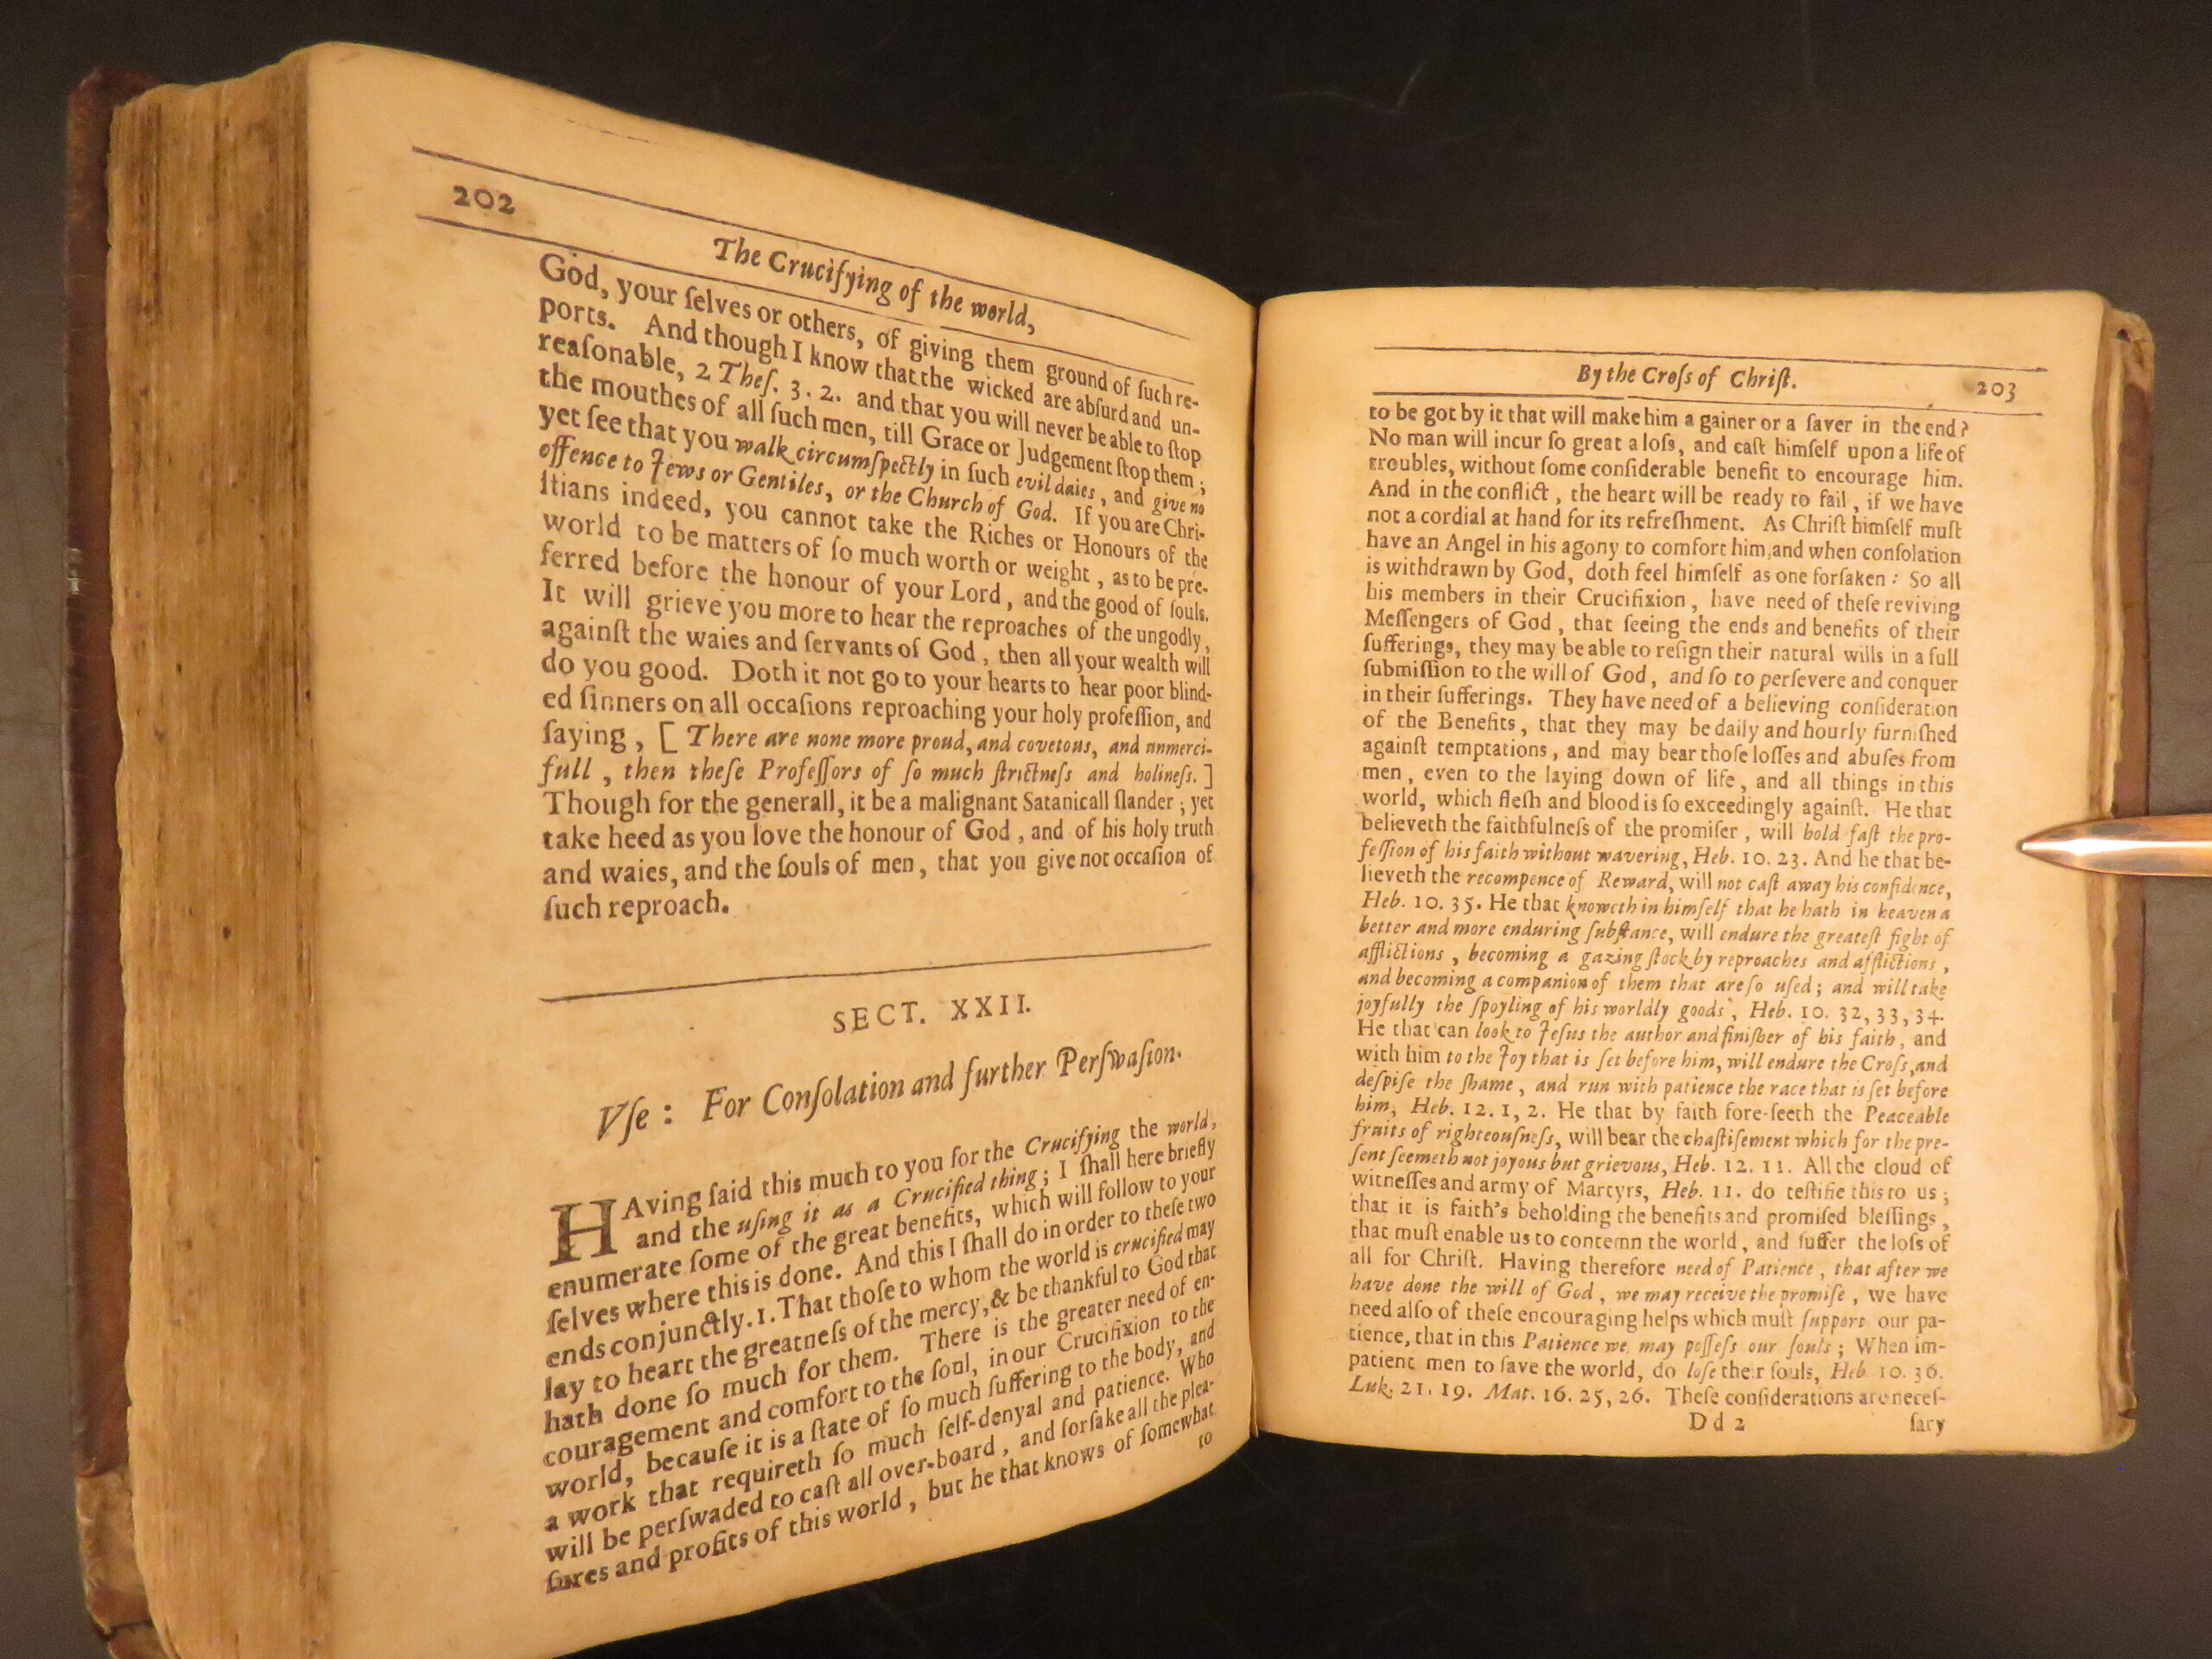 202
The Crucifying of the world,
God, your ſelves or others, of giving them ground of ſuch re-
ports. And though I know that the wicked are abſurd and un-
reaſonable, 2 Theſ. 3. 2. and that you will never be able to ſtop
the mouthes of all ſuch men, till Grace or Judgement ſtop them;
yet ſee that you walk circumſpectly in ſuch evil daies, and give no
offence to Jews or Gentiles, or the Church of God. If you are Chri-
ſtians indeed, you cannot take the Riches or Honours of the
world to be matters of ſo much worth or weight, as to be pre-
ferred before the honour of your Lord, and the good of ſouls.
It will grieve you more to hear the reproaches of the ungodly,
againſt the waies and ſervants of God, then all your wealth will
do you good. Doth it not go to your hearts to hear poor blind-
ed ſinners on all occaſions reproaching your holy profeſſion, and
ſaying, [ There are none more proud, and covetous, and unmerci-
full, then theſe Profeſſors of ſo much ſtrictneſs and holineſs. ]
Though for the generall, it be a malignant Satanicall ſlander; yet
take heed as you love the honour of God, and of his holy truth
and waies, and the ſouls of men, that you give not occaſion of
ſuch reproach.
SECT. XXII.
Vſe: For Conſolation and further Perſwaſion.
HAving ſaid this much to you for the Crucifying the world,
and the uſing it as a Crucified thing; I ſhall here briefly
enumerate ſome of the great benefits, which will follow to your
ſelves where this is done. And this I ſhall do in order to theſe two
ends conjunctly. 1. That thoſe to whom the world is crucified may
lay to heart the greatneſs of the mercy, & be thankful to God that
hath done ſo much for them. There is the greater need of en-
couragement and comfort to the ſoul, in our Crucifixion to the
world, becauſe it is a ſtate of ſo much ſuffering to the body, and
a work that requireth ſo much ſelf-denyal and patience. Who
will be perſwaded to caſt all over-board, and forſake all the plea-
ſures and profits of this world, but he that knows of ſomewhat
to
By the Croſs of Chriſt.
203
to be got by it that will make him a gainer or a ſaver in the end?
No man will incur ſo great a loſs, and caſt himſelf upon a life of
troubles, without ſome conſiderable benefit to encourage him.
And in the conflict, the heart will be ready to fail, if we have
not a cordial at hand for its refreſhment. As Chriſt himſelf muſt
have an Angel in his agony to comfort him, and when conſolation
is withdrawn by God, doth feel himſelf as one forſaken: So all
his members in their Crucifixion, have need of theſe reviving
Meſſengers of God, that ſeeing the ends and benefits of their
ſufferings, they may be able to reſign their natural wills in a full
ſubmiſſion to the will of God, and ſo to perſevere and conquer
in their ſufferings. They have need of a believing conſideration
of the Benefits, that they may be daily and hourly furniſhed
againſt temptations, and may bear thoſe loſſes and abuſes from
men, even to the laying down of life, and all things in this
world, which fleſh and blood is ſo exceedingly againſt. He that
believeth the faithfulneſs of the promiſer, will hold faſt the pro-
feſſion of his faith without wavering, Heb. 10. 23. And he that be-
lieveth the recompence of Reward, will not caſt away his confidence,
Heb. 10. 35. He that knoweth in himſelf that he hath in heaven a
better and more enduring ſubſtance, will endure the greateſt fight of
afflictions, becoming a gazing ſtock by reproaches and afflictions,
and becoming a companion of them that are ſo uſed; and will take
joyfully the ſpoyling of his worldly goods, Heb. 10. 32, 33, 34.
He that can look to Jeſus the author and finiſher of his faith, and
with him to the Joy that is ſet before him, will endure the Croſs, and
deſpiſe the ſhame, and run with patience the race that is ſet before
him, Heb. 12. 1, 2. He that by faith fore-ſeeth the Peaceable
fruits of righteouſneſs, will bear the chaſtiſement which for the pre-
ſent ſeemeth not joyous but grievous, Heb. 12. 11. All the cloud of
witneſſes and army of Martyrs, Heb. 11. do teſtifie this to us;
that it is faith's beholding the benefits and promiſed bleſſings,
that muſt enable us to contemn the world, and ſuffer the loſs of
all for Chriſt. Having therefore need of Patience, that after we
have done the will of God, we may receive the promiſe, we have
need alſo of theſe encouraging helps which muſt ſupport our pa-
tience, that in this Patience we may poſſeſs our ſouls; When im-
patient men to ſave the world, do loſe their ſouls, Heb 10. 36.
Luk. 21. 19. Mat. 16. 25, 26. Theſe conſiderations are neceſ-
D d 2
ſary